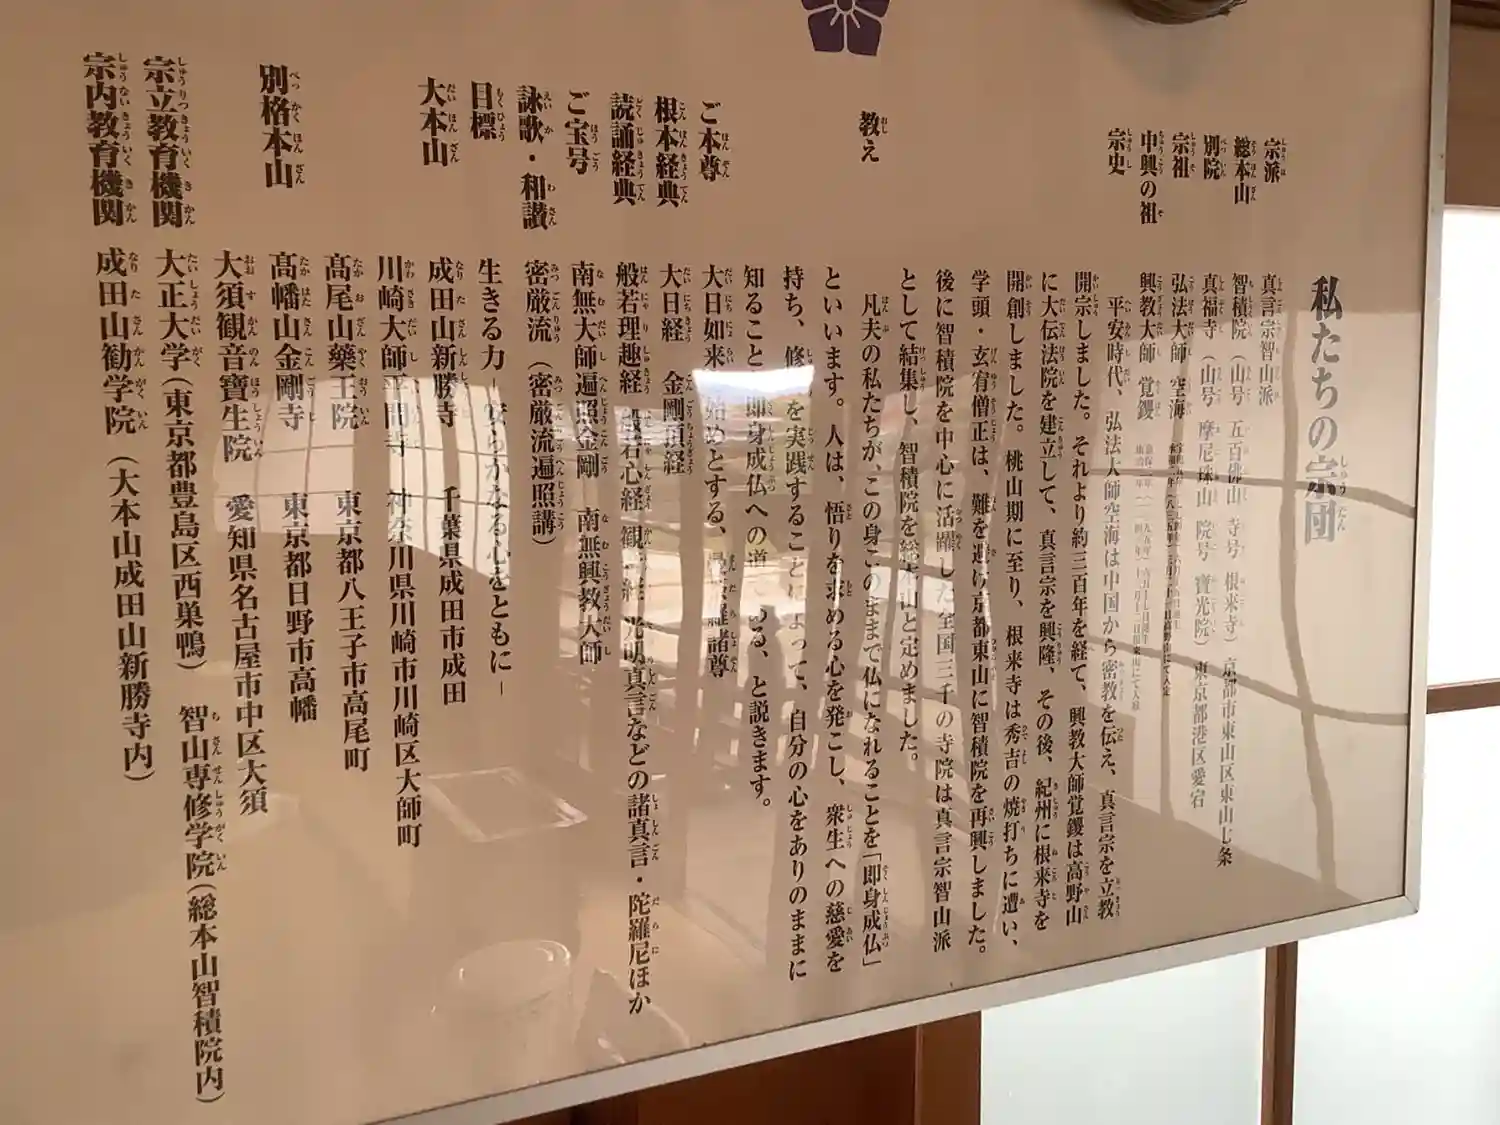 私たちの宗団
宗派 真言宗智山派
総本山 智積院（山号 五百佛山 寺号 根来寺）京都市東山区東山七条
別院 真福寺（山号 摩尼珠山 院号 寶光院）東京都港区愛宕
宗祖 弘法大師 空海
中興の祖 興教大師 覚鑁
宗史 平安時代、弘法大師空海は中国から密教を伝え、真言宗を立教
開宗しました。それより約三百年を経て、興教大師覚鑁は高野山
に大伝法院を建立して、真言宗を興隆、その後、紀州に根来寺を
開創しました。桃山期に至り、根来寺は秀吉の焼打ちに遭い、
学頭・玄宥僧正は、難を避け京都東山に智積院を再興しました。
後に智積院を中心に活躍した全国三千の寺院は真言宗智山派
として結集し、智積院を総本山と定めました。
教え 凡夫の私たちが、この身このままで仏になれることを「即身成仏」
といいます。人は、悟りを求める心を発こし、衆生への慈愛を
持ち、修行を実践することによって、自分の心をありのままに
知ること 即身成仏への道である、と説きます。
ご本尊 大日如来 始めとする、曼荼羅諸尊
根本経典 大日経 金剛頂経
読誦経典 般若理趣経 般若心経 観音経 光明真言などの諸真言・陀羅尼ほか
ご宝号 南無大師遍照金剛 南無興教大師
詠歌・和讃 密厳流（密厳流遍照講）
目標 生きる力―安らかなる心をともに―
大本山 成田山新勝寺 千葉県成田市成田
川崎大師平間寺 神奈川県川崎市川崎区大師町
髙尾山藥王院 東京都八王子市高尾町
別格本山 髙幡山金剛寺 東京都日野市高幡
大須観音寶生院 愛知県名古屋市中区大須
宗立教育機関 大正大学（東京都豊島区西巣鴨） 智山専修学院（総本山智積院内）
宗内教育機関 成田山勧学院（大本山成田山新勝寺内）